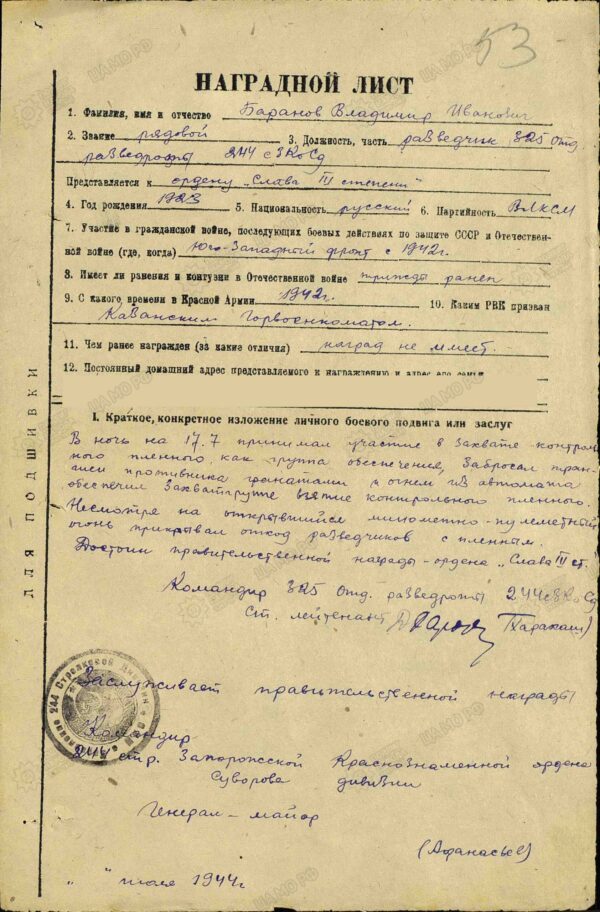 53
НАГРАДНОЙ ЛИСТ
1. Фамилия, имя и отчество Баранов Владимир Иванович
2. Звание рядовой 3. Должность, часть разведчик 325 отд.
разведроты 244 сЗКоСд
Представляется к ордену „Слава III степени"
4. Год рождения 1923 5. Национальность русский 6. Партийность ВЛКСМ
7. Участие в гражданской войне, последующих боевых действиях по защите СССР и Отечествен-
ной войне (где, когда) Юго-Западный фронт с 1942г.
8. Имеет ли ранения и контузии в Отечественной войне трижды ранен
9. С какого времени в Красной Армии 1942г. 10. Каким РВК призван
Казанским Горвоенкоматом.
11. Чем ранее награжден (за какие отличия) наград не имеет.
12. Постоянный домашний адрес представляемого к награждению и адрес его семьи
I. Краткое, конкретное изложение личного боевого подвига или заслуг
В ночь на 17.7 принимал участие в захвате контроль-
ного пленного как группа обеспечения, Забросал тран-
шеи противника гранатами и огнем из автомата
обеспечил Захватгруппе взятие контрольного пленного.
Несмотря на открывшийся минометно-пулеметный
огонь прикрывал отход разведчиков с пленным.
Достоин правительственной награды - ордена „Слава III ст.
Командир 325 Отд. разведроты 244 сЗКоСд
Ст. лейтенант
Заслуживает правительственной награды
Командир
244 стр. Запорожской Краснознаменной ордена
Суворова дивизии
Генерал-майор
(Афанасьев)
„ " июля 1944г
ДЛЯ ПОДШИВКИ